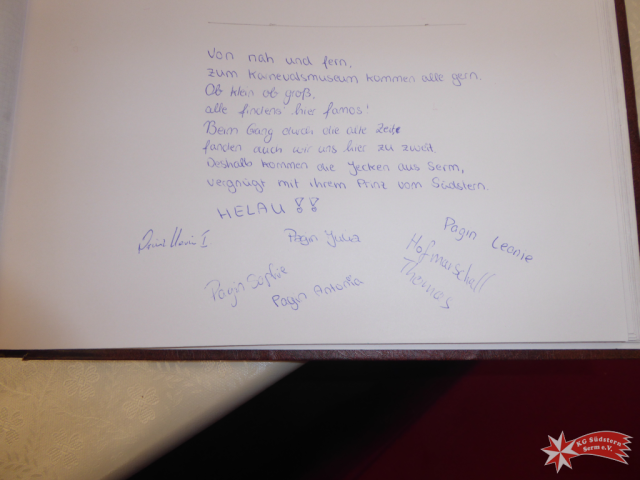 Von nah und fern,
zum Karnevalsmuseum kommen alle gern.
Ob klein ob groß,
alle finden's hier famos!
Beim Gang durch die alte Zeit
fanden auch wir uns hier zu zweit.
Deshalb kommen die Jecken aus Serm,
vergnügt mit ihrem Prinz vom Südstern
HELAU !!
Pagin Julia
Pagin Leonie
Hofmarschall
Thomas
Pagin Sophie
Pagin Annika
KG Südstern
Serm e.V.